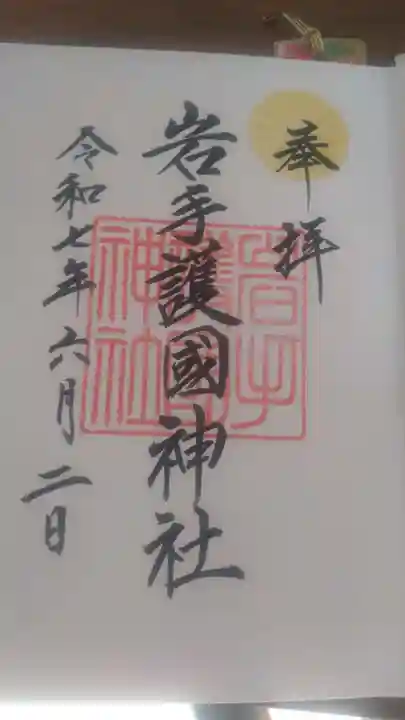 奉拝
岩手護國神社
令和七年六月二日
岩手
護國
神社